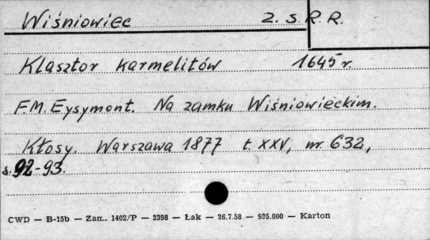 Wiśniowiec Z.S.R.R.
Klasztor karmelitów 1645 r.
F.M. Eysymont. Na zamku Wiśniowieckim.
Kłosy. Warszawa 1877 t. XXV, nr 632,
s. 92-93.
CWD — B-15b — Zam. 1402/P — 2398 — Łak — 26.7.58 — 935.000 — Karton